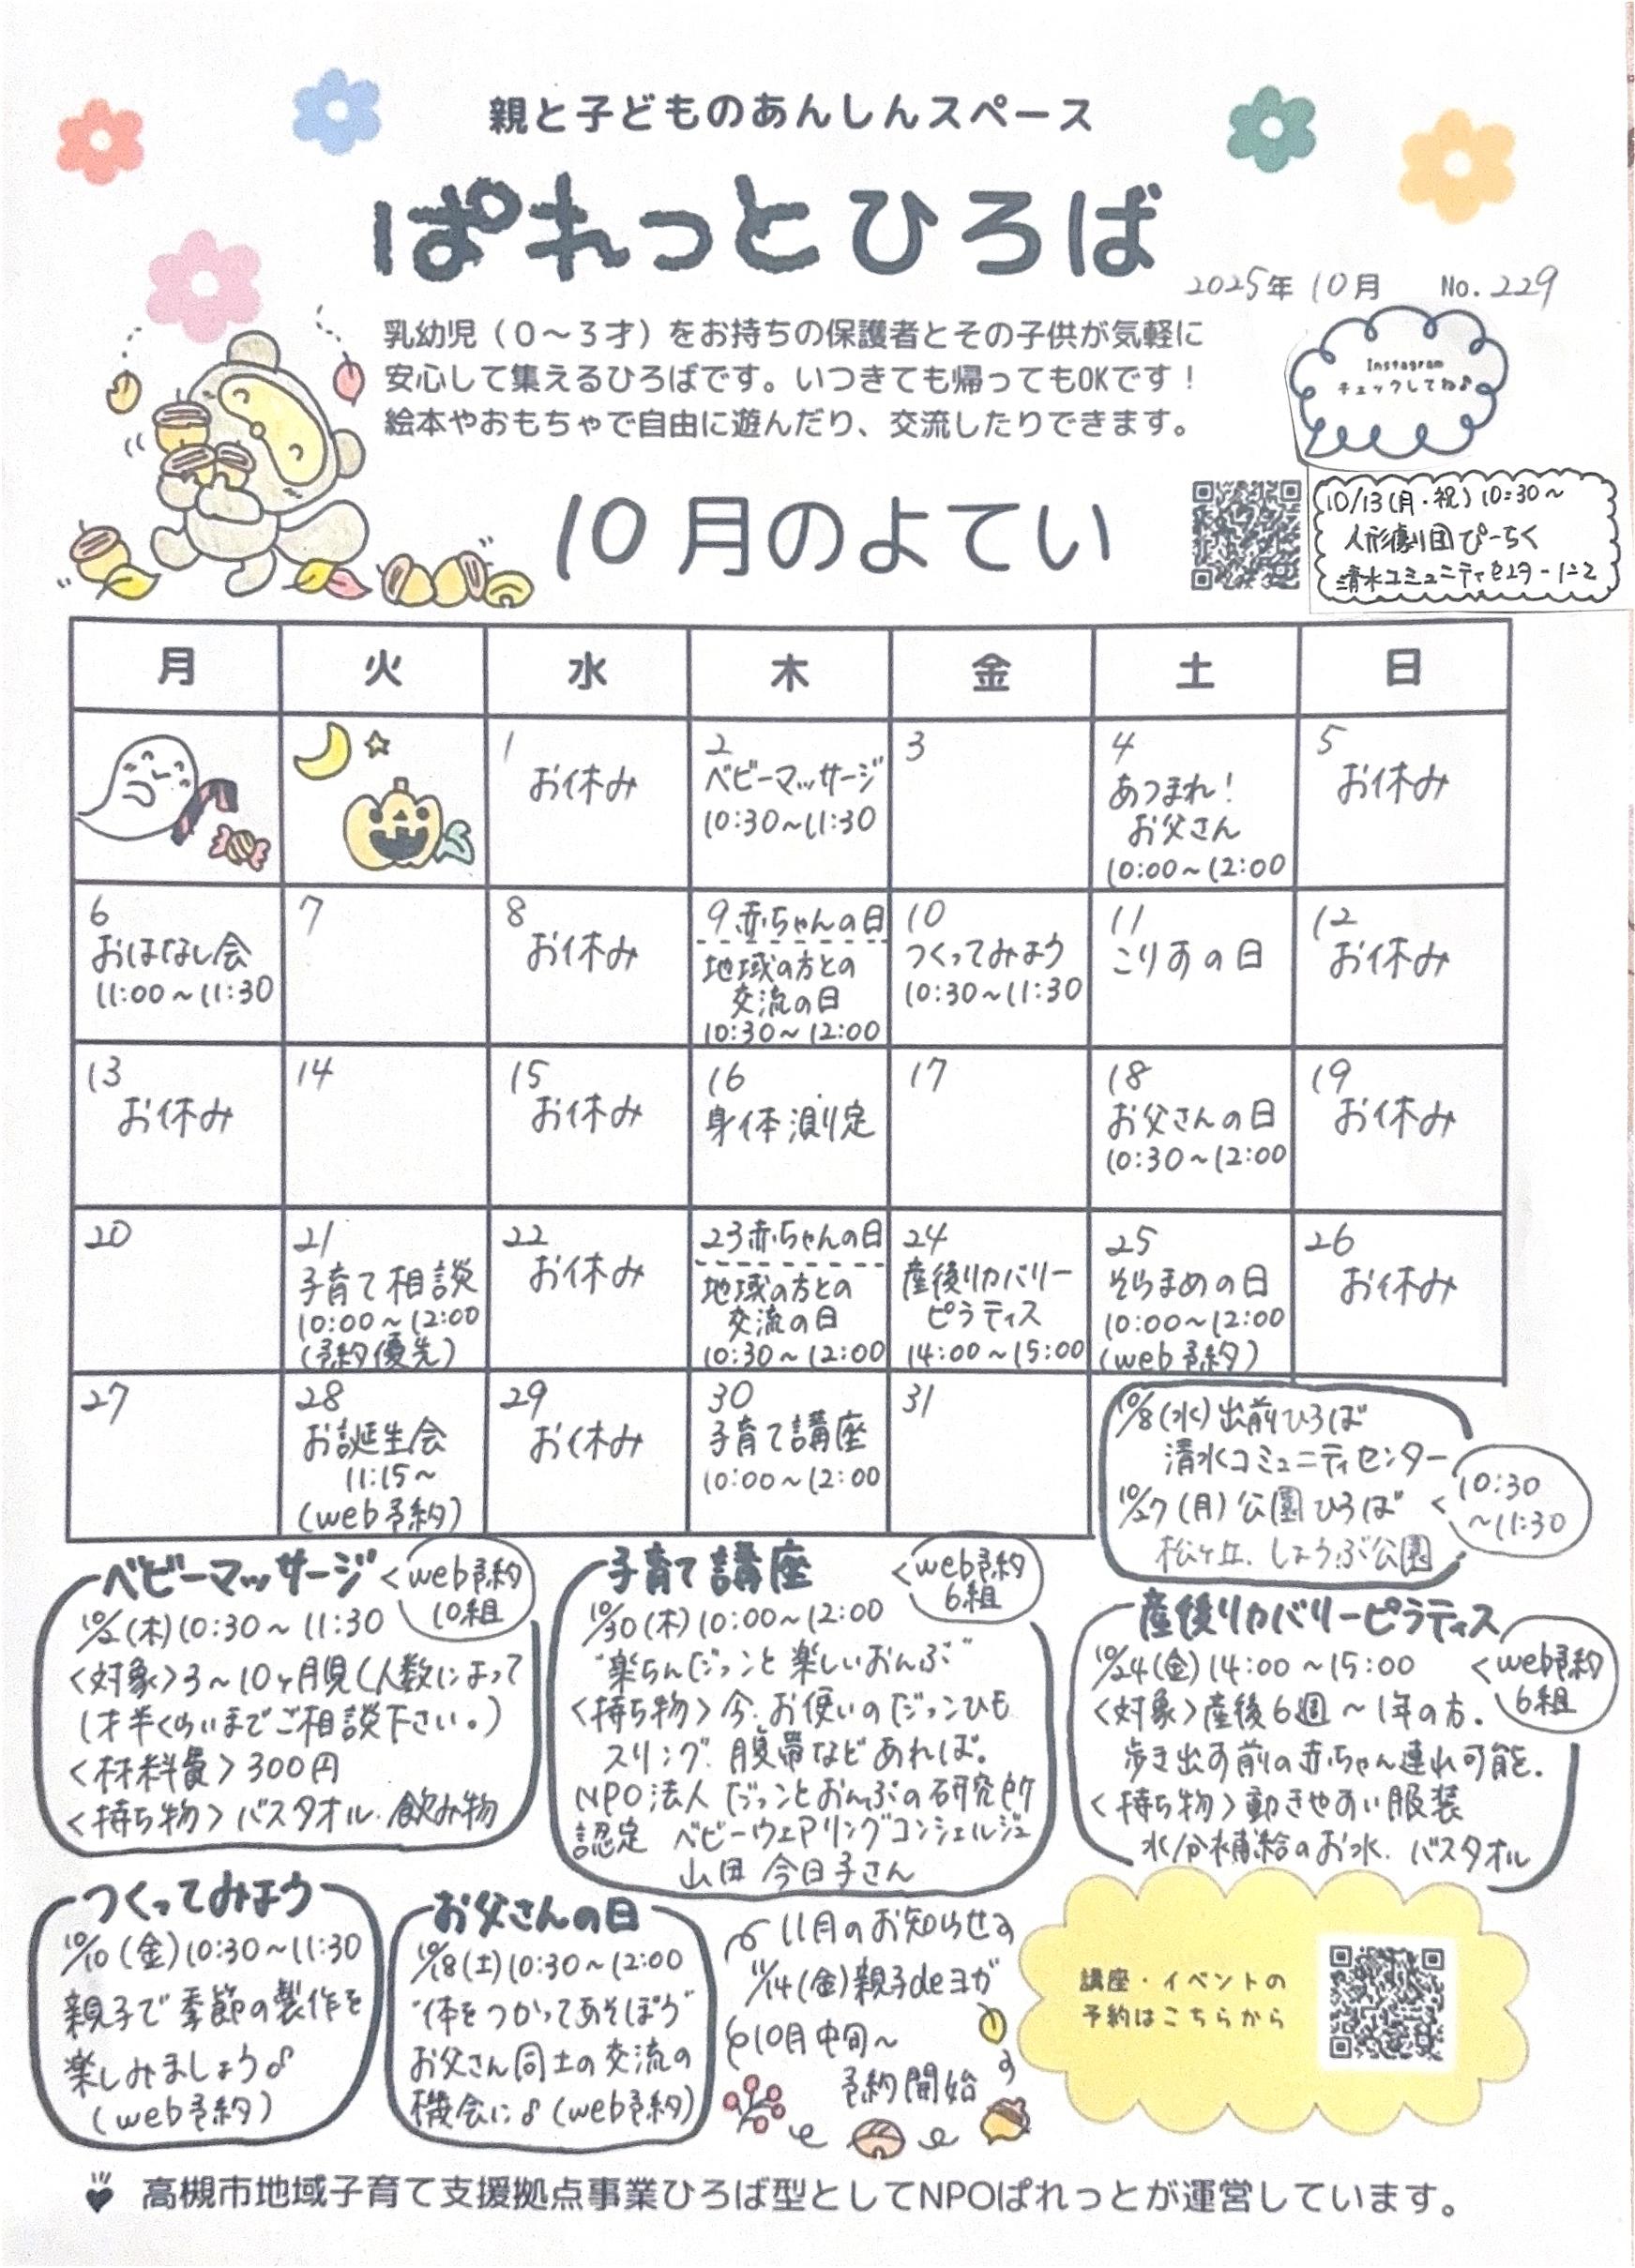 親と子どものあんしんスペース
ぱれっとひろば
2025年 10月 No.229
乳幼児（0〜3才）をお持ちの保護者とその子供が気軽に
安心して集えるひろばです。いつきても帰ってもOKです！
絵本やおもちゃで自由に遊んだり、交流したりできます。
Instagram
チェックしてね♪
10月のよてい
10/13(月・祝) 10:30〜
人形劇団ぴーちく
清水コミュニティセンターにて
月 火 水 木 金 土 日
1
お休み
2
ベビーマッサージ
10:30〜11:30
3
4
あつまれ！
お父さん
10:00〜12:00
5
お休み
6
おはなし会
11:00〜11:30
7
8
お休み
9 赤ちゃんの日
地域の方との
交流の日
10:30〜12:00
10
つくってみよう
10:30〜11:30
11
こりすの日
12
お休み
13
お休み
14
15
お休み
16
身体測定
17
18
お父さんの日
10:30〜12:00
19
お休み
20
21
子育て相談
10:00〜12:00
(予約優先)
22
お休み
23 赤ちゃんの日
地域の方との
交流の日
10:30〜12:00
24
産後リカバリー
ピラティス
14:00〜15:00
25
そらまめの日
10:00〜12:00
(web予約)
26
お休み
27
28
お誕生会
11:15〜
(web予約)
29
お休み
30
子育て講座
10:00〜12:00
31
10/8(水)出前ひろば
清水コミュニティセンター
10/27(月)公園ひろば
松ヶ丘.しょうぶ公園
10:30
〜11:30
ベビーマッサージ
web予約
10組
10/2(木)10:30〜11:30
<対象>3〜10ヶ月児(人数によって
1才半くらいまでご相談下さい。)
<材料費>300円
<持ち物>バスタオル.飲み物
子育て講座
web予約
6組
10/30(木)10:00〜12:00
"楽らんだっこと楽しいおんぶ"
<持ち物>今、お使いのだっこひも
スリング、腹帯などあれば。
NPO法人 だっことおんぶの研究所
認定 ベビーウェアリングコンシェルジュ
山田 今日子さん
産後リカバリーピラティス
web予約
6組
10/24(金)14:00〜15:00
<対象>産後6週〜1年の方.
歩き出す前の赤ちゃん連れ可能.
<持ち物>動きやすい服装
水分補給のお水.バスタオル
つくってみよう
10/10(金)10:30〜11:30
親子で季節の製作を
楽しみましょう♪
(web予約)
お父さんの日
10/18(土)10:30〜12:00
"体をつかってあそぼう"
お父さん同士の交流の
機会に♪(web予約)
11月のお知らせ
11/14(金)親子deヨガ
10月中旬〜
予約開始
講座・イベントの
予約はこちらから
高槻市地域子育て支援拠点事業ひろば型としてNPOぱれっとが運営しています。